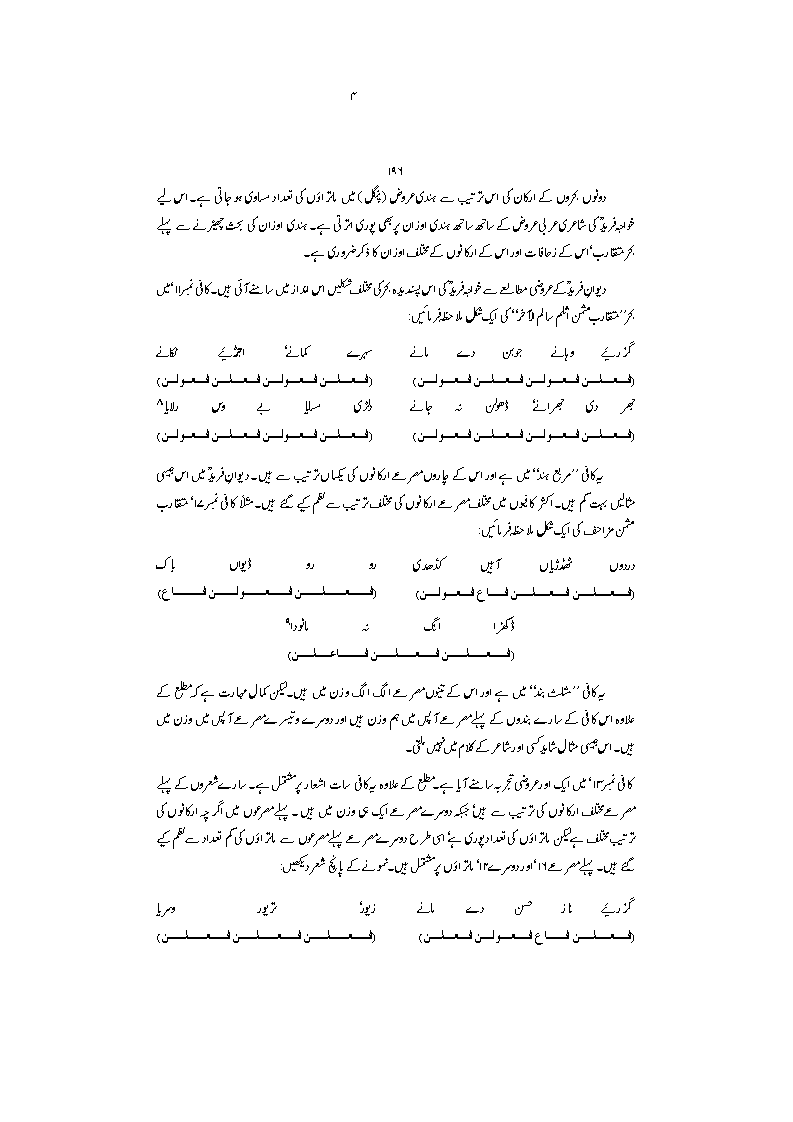 ۴
۱۹۶
دونوں بحروں کے ارکان کی اس ترتیب سے ہندی عروض (پنگل) میں ماتراؤں کی تعداد مساوی ہو جاتی ہے۔ اس لیے
خواجہ فریدؒ کی شاعری عربی عروض کے ساتھ ساتھ ہندی اوزان پر بھی پوری اترتی ہے۔ ہندی اوزان کی بحث چھیڑنے سے پہلے
بحر متقارب‘ اس کے زحافات اور اس کے ارکانوں کے مختلف اوزان کا ذکر ضروری ہے۔
دیوانِ فریدؒ کے عروضی مطالعے سے خواجہ فریدؒ کی اس پسندیدہ بحر کی مختلف شکلیں اس انداز میں سامنے آئی ہیں۔ کافی نمبر۱۱‘ میں
بحر ’’متقارب مثمن اثلم سالم الآخر‘‘ کی ایک شکل ملاحظہ فرمائیں:
گزریے وہانے جوبن دے مانے سہرے کمانے‘ اجڑیے ٹکانے
(فعلن فعولن فعلن فعولن) (فعلن فعولن فعلن فعولن)
تھر دی تھرانے‘ ڈھولن نہ جانے دلڑی سہلیا بے وس رلایا۸
(فعلن فعولن فعلن فعولن) (فعلن فعولن فعلن فعولن)
یہ کافی ’’مربع بند‘‘ میں ہے اور اس کے چاروں مصرعے ارکانوں کی یکساں ترتیب سے ہیں۔ دیوانِ فریدؒ میں اس جیسی
مثالیں بہت کم ہیں۔ اکثر کافیوں میں مختلف مصرعے ارکانوں کی مختلف ترتیب سے نظم کیے گئے ہیں۔ مثلاً کافی نمبر۱۷‘ متقارب
مثمن مزاحف کی ایک شکل ملاحظہ فرمائیں:
دردوں ٹھڈڑیاں آہیں کڈھدی رو رو ڈیواں باک
(فعلن فعلن فاع فعولن) (فعلن فعلن فعولن فاع)
ڈکھڑا انگ نہ مانودا۹
(فعلن فعلن فاعلن)
یہ کافی ’’مثلث بند‘‘ میں ہے اور اس کے تینوں مصرعے الگ الگ وزن میں ہیں۔ لیکن کمال مہارت ہے کہ مطلع کے
علاوہ اس کافی کے سارے بندوں کے پہلے مصرعے آپس میں ہم وزن ہیں اور دوسرے و تیسرے مصرعے آپس میں وزن میں
ہیں۔ اس جیسی مثال شاید کسی اور شاعر کے کلام میں نہیں ملتی۔
کافی نمبر۱۳‘ میں ایک اور عروضی تجربہ سامنے آیا ہے۔ مطلع کے علاوہ یہ کافی سات اشعار پر مشتمل ہے۔ سارے شعروں کے پہلے
مصرعے مختلف ارکانوں کی ترتیب سے ہیں‘ جبکہ دوسرے مصرعے ایک ہی وزن میں ہیں۔ پہلے مصرعوں میں اگرچہ ارکانوں کی
ترتیب مختلف ہے لیکن ماتراؤں کی تعداد پوری ہے‘ اسی طرح دوسرے مصرعے پہلے مصرعوں سے ماتراؤں کی کم تعداد سے نظم کیے
گئے ہیں۔ پہلے مصرعے ۱۶‘ اور دوسرے ۱۲‘ ماتراؤں پر مشتمل ہیں۔ نمونے کے پانچ شعر دیکھیں:
گزریے ناز حسن دے مانے زیور‘ تریور وسریا
(فعلن فاع فعولن فعلن) (فعلن فعلن فعلن)